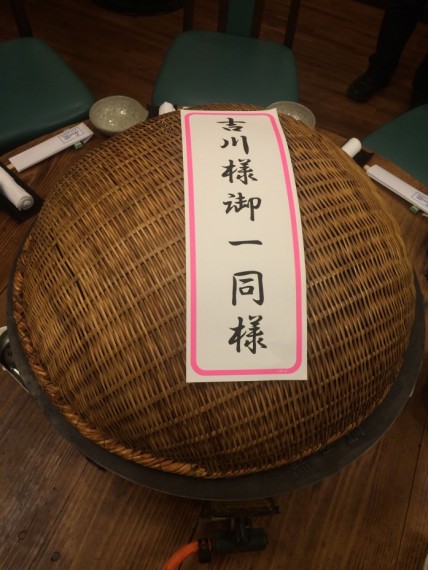 吉川様御一同様